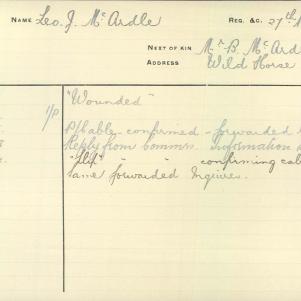 NAME Leo. J. McArdle REG. &C. 27th
NEXT OF KIN Mr B. McArd
ADDRESS Wild Horse
"Wounded"
1/P confirmed - forwarded
Reply from Comms. Information
" " confirming cab
same forwarded Inquires.